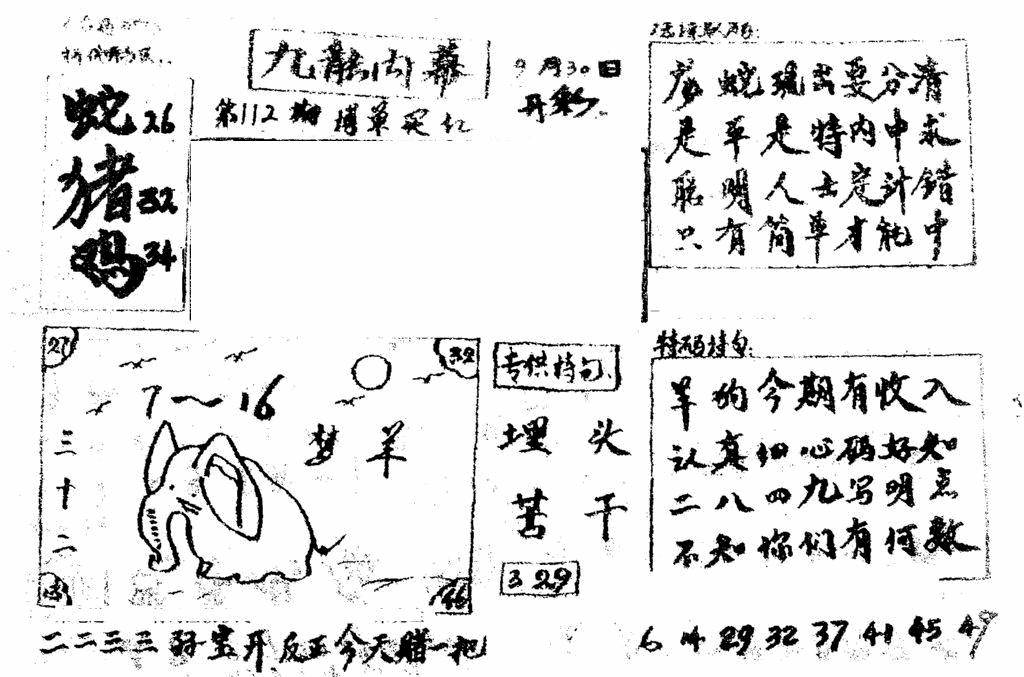 九龍內幕
9月30日
开彩
第112期 博單买红
蛇26
猪32
鸡34
蛇现出要分清
是單是特内中求
聪明人士定计錯
只有简單才能中
27
32
7～16
梦羊
三十二
46
专供特句
埋头
苦干
3 29
特码诗句:
羊狗今期有收入
认真细心码好知
二八四九写明点
不知你们有何数
二二三三 开反正今天賭一把
6 14 29 32 37 41 45 49